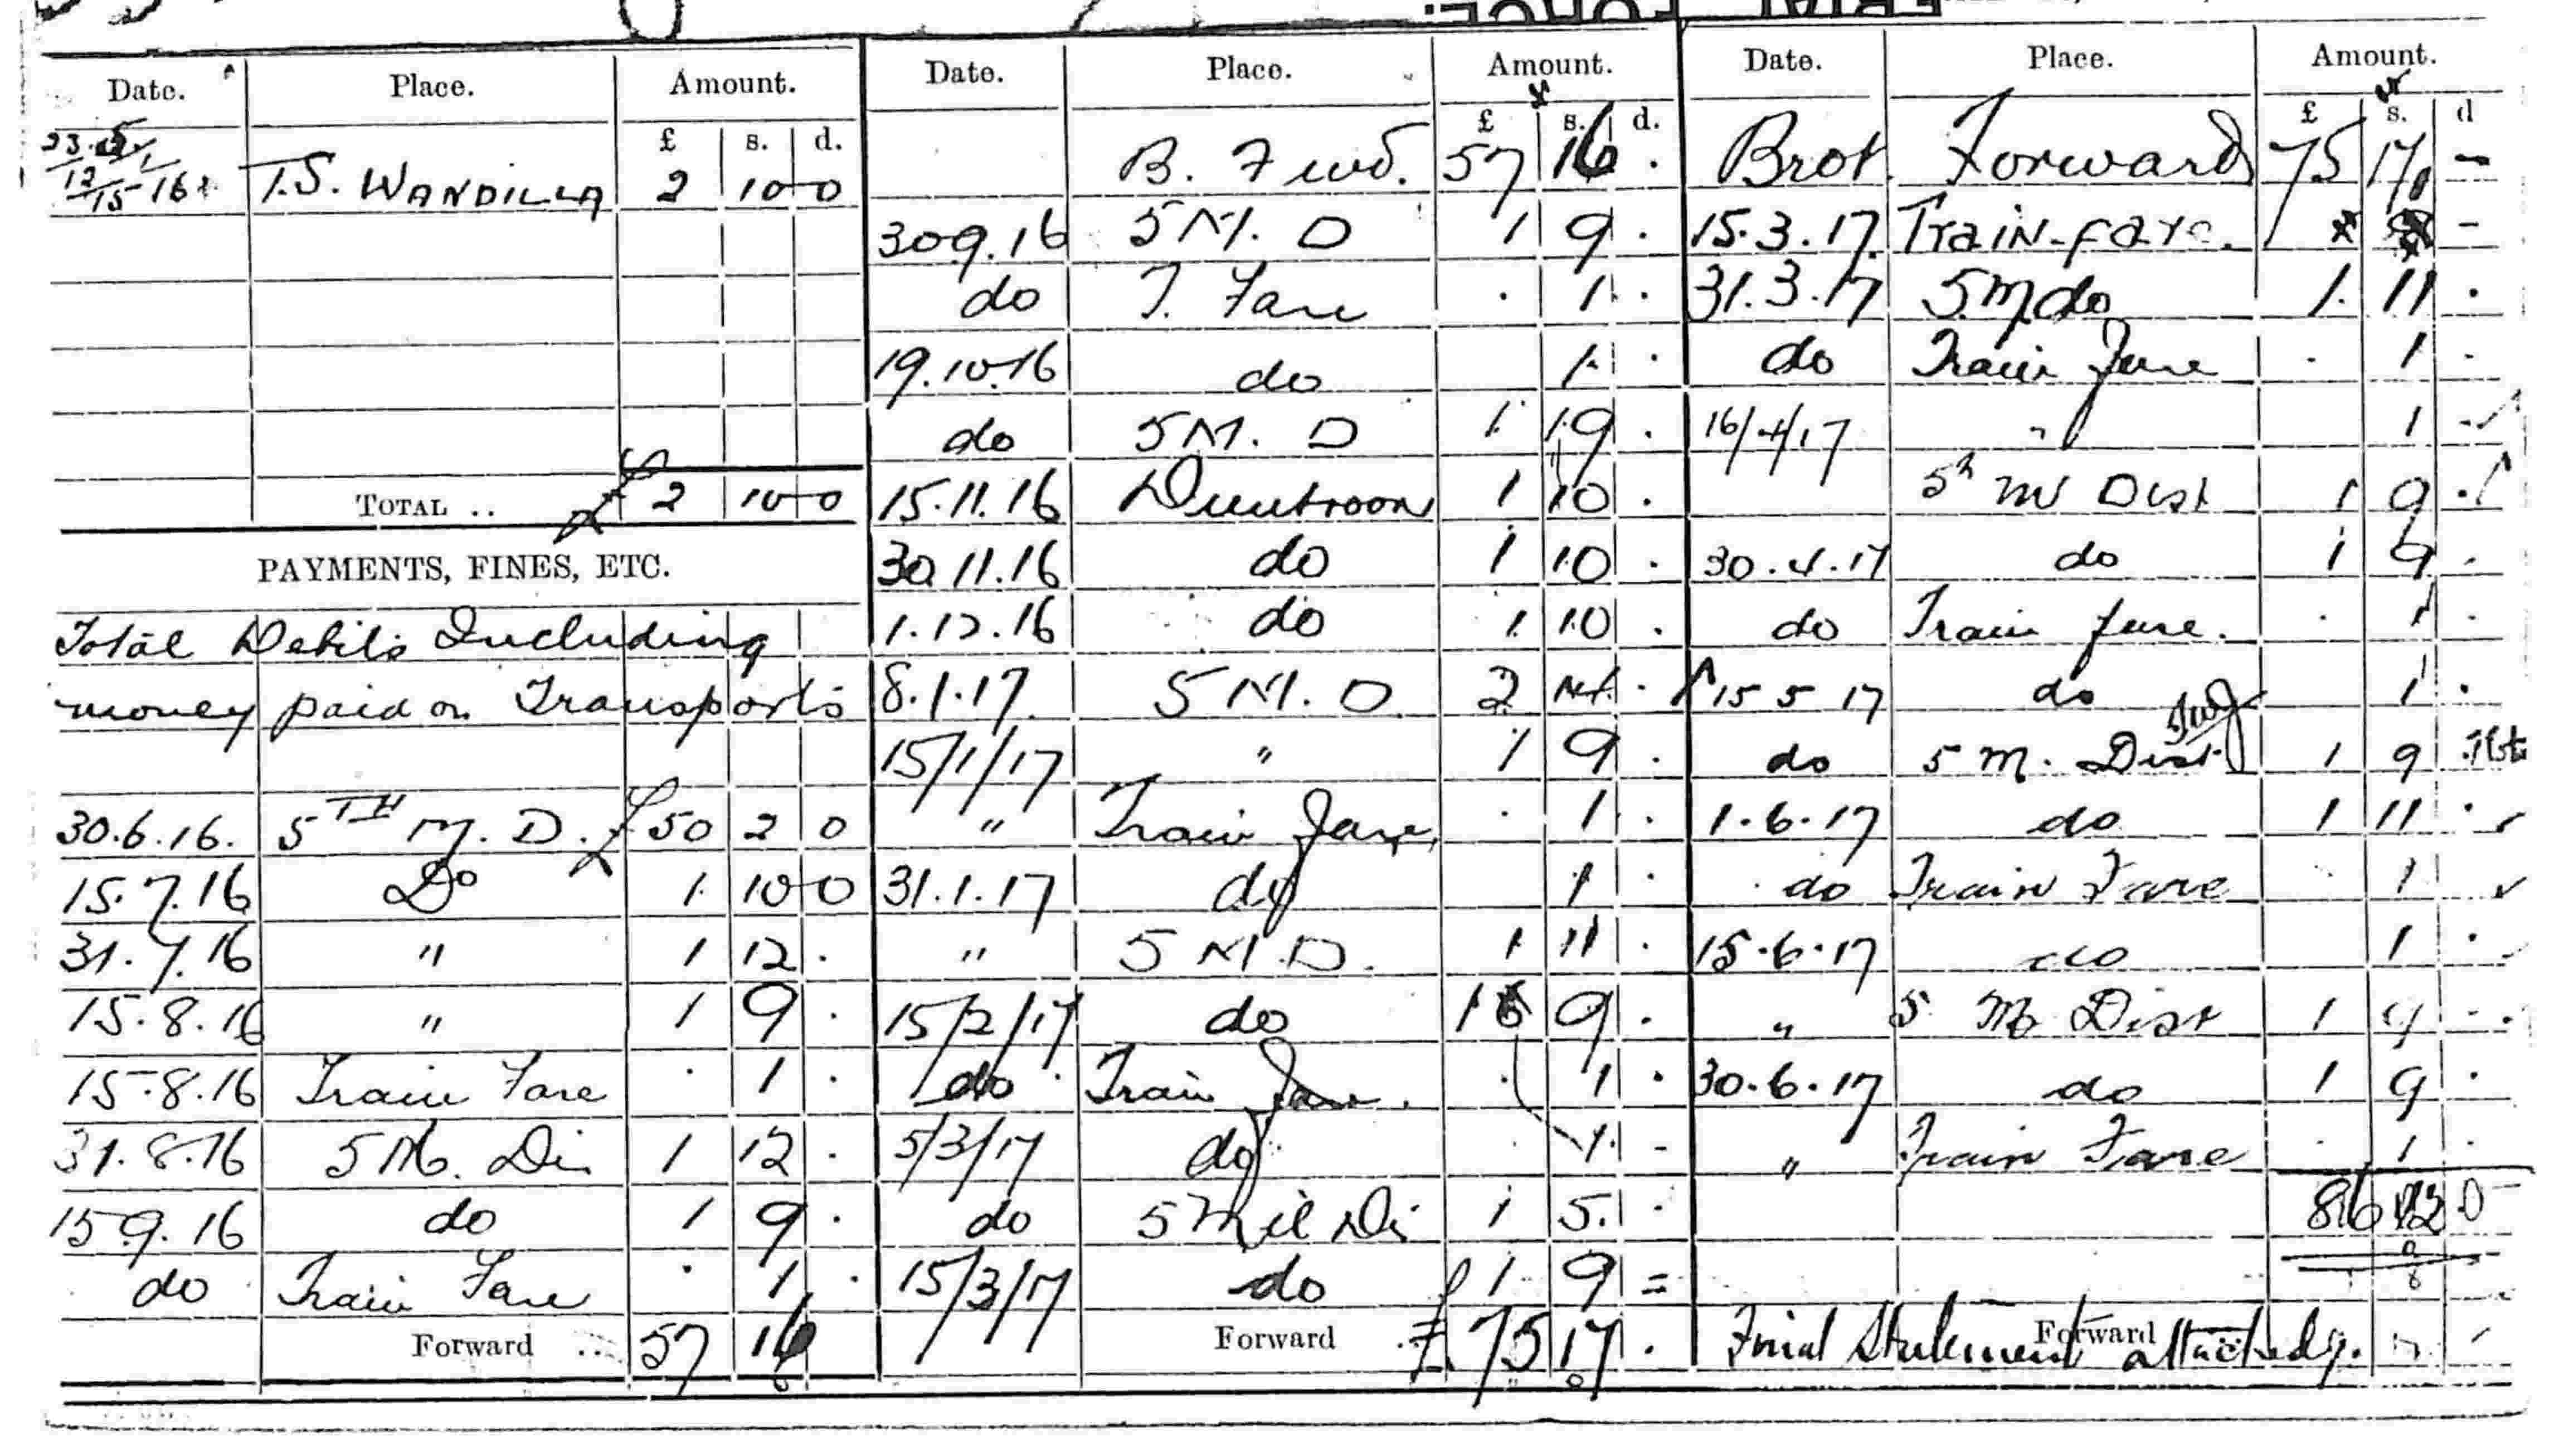 Date. Place. Amount.
£ s. d.
T.S. WANDILLA 2 10 0
TOTAL .. £ 2 10 0
PAYMENTS, FINES, ETC.
Total Debits Including
money paid on Transports
30.6.16. 5TH M. D. £ 50 2 0
15.7.16 Do 1 10 0
31.7.16 " 1 12 .
15.8.16 " 1 9 .
15.8.16 Train Fare . 1 .
31.8.16 5 M. Dis 1 12 .
15.9.16 do 1 9 .
do Train Fare . 1 .
Forward .. 57 16
Date. Place. Amount.
£ s. d.
B. Fwd. 57 16 .
30.9.16 5 M. D 1 9 .
do T. Fare . 1 .
19.10.16 do 1 .
do 5 M. D 1 9 .
15.11.16 Duntroon 1 10 .
30.11.16 do 1 10 .
1.12.16 do 1 10 .
8.1.17 5 M. D. 2 14 .
15/1/17 " 1 9 .
" Train Fare . 1 .
31.1.17 do 1 .
" 5 M.D. 1 11 .
15/2/17 do 1 9 .
do Train Fare . 1 .
5/3/17 do . 1 -
do 5 Mil Dis 1 5 .
15/3/17 do £ 1 9 =
Forward .. £ 75 17 .
Date. Place. Amount.
£ s. d
Brot Forward 75 17 -
15.3.17 Train-fare. 1 -
31.3.17 5 M do 1 11 .
do Train Fare . 1 .
16/4/17 " 1 -
5th M Dist 1 9 .
30.4.17 do 1 9 .
do Train fare. . 1 .
15 5 17 do 1 .
do 5 M. Dist 1 9 .
1.6.17 do 1 11 .
do Train Fare 1
15.6.17 do 1 .
" 5 M Dist 1 9 .
30.6.17 do 1 9 .
" Train Fare . 1 .
86 12 0
Forward
Final Statement attached.